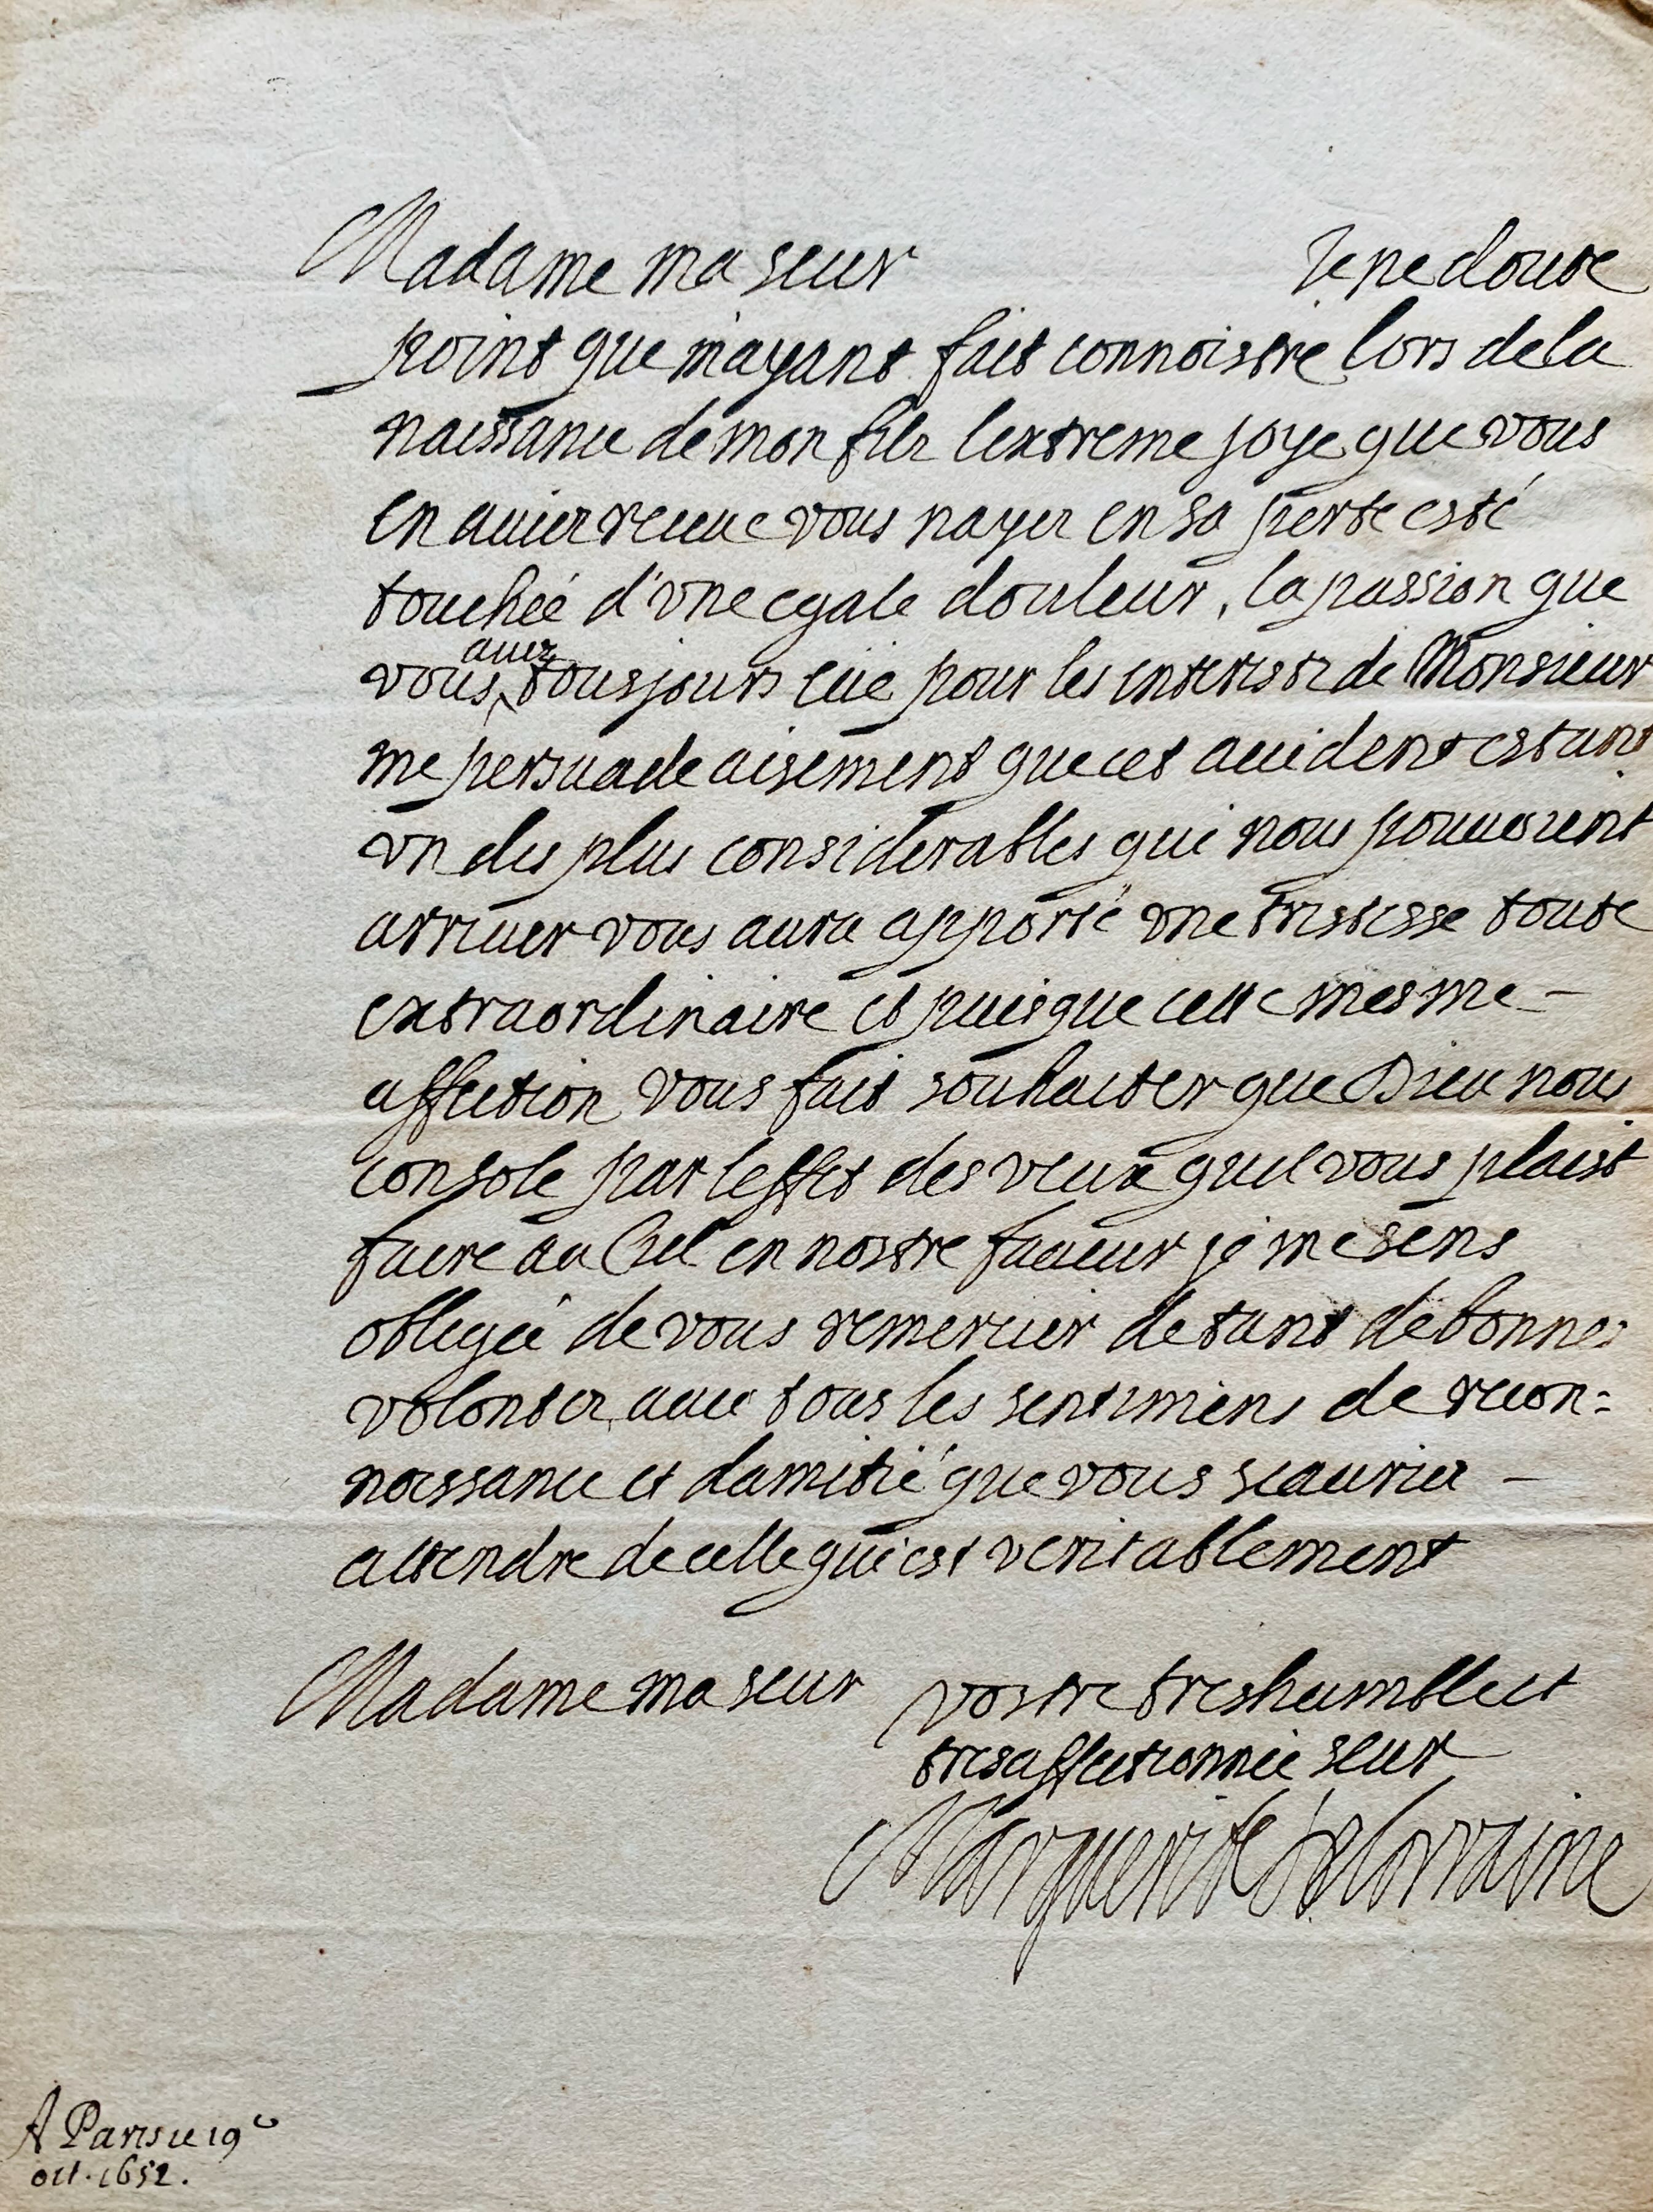 Madame ma seur Je ne doute
point que m'ayant fait connoistre lors de la
naissance de mon filz lextreme joye que vous
en auiez receue vous nayez en sa perte esté
touchée d'vne egale douleur, la passion que
vous auez tousjours eüe pour les interestz de Monsieur
me persuade aisement que cet accident estant
vn des plus considerables qui nous pouuoient
arriuer vous aura apporté vne tristesse toute
extraordinaire et puisque cette mesme –
affection vous fait souhaiter que Dieu nous
console par leffet des veux quil vous plaist
faire au Ciel en nostre faueur je me sens
obligée de vous remercier de tant de bonnes
volontez auec tous les sentimens de recon=
noissance et damitié que vous scauriez –
attendre de celle qui est veritablement
Madame ma seur vostre treshumble et
tresaffectionnée seur
Marguerite de lorraine
A Paris ce 19e
oct. 1652.